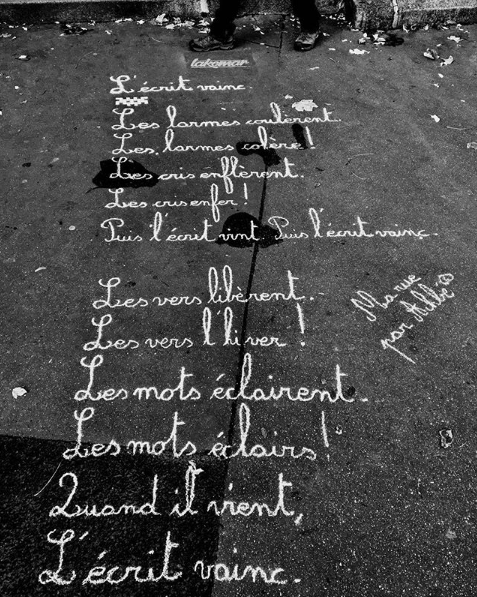 lakomar
L'écrit vainc.
Les larmes coulèrent.
Les larmes colère !
Les cris enflèrent.
Les cris enfer !
Puis l'écrit vint. Puis l'écrit vainc.
Les vers libèrent.
Les vers l'hiver !
Les mots éclairent.
Les mots éclairs !
Quand il vient,
L'écrit vainc.
Ma rue
par